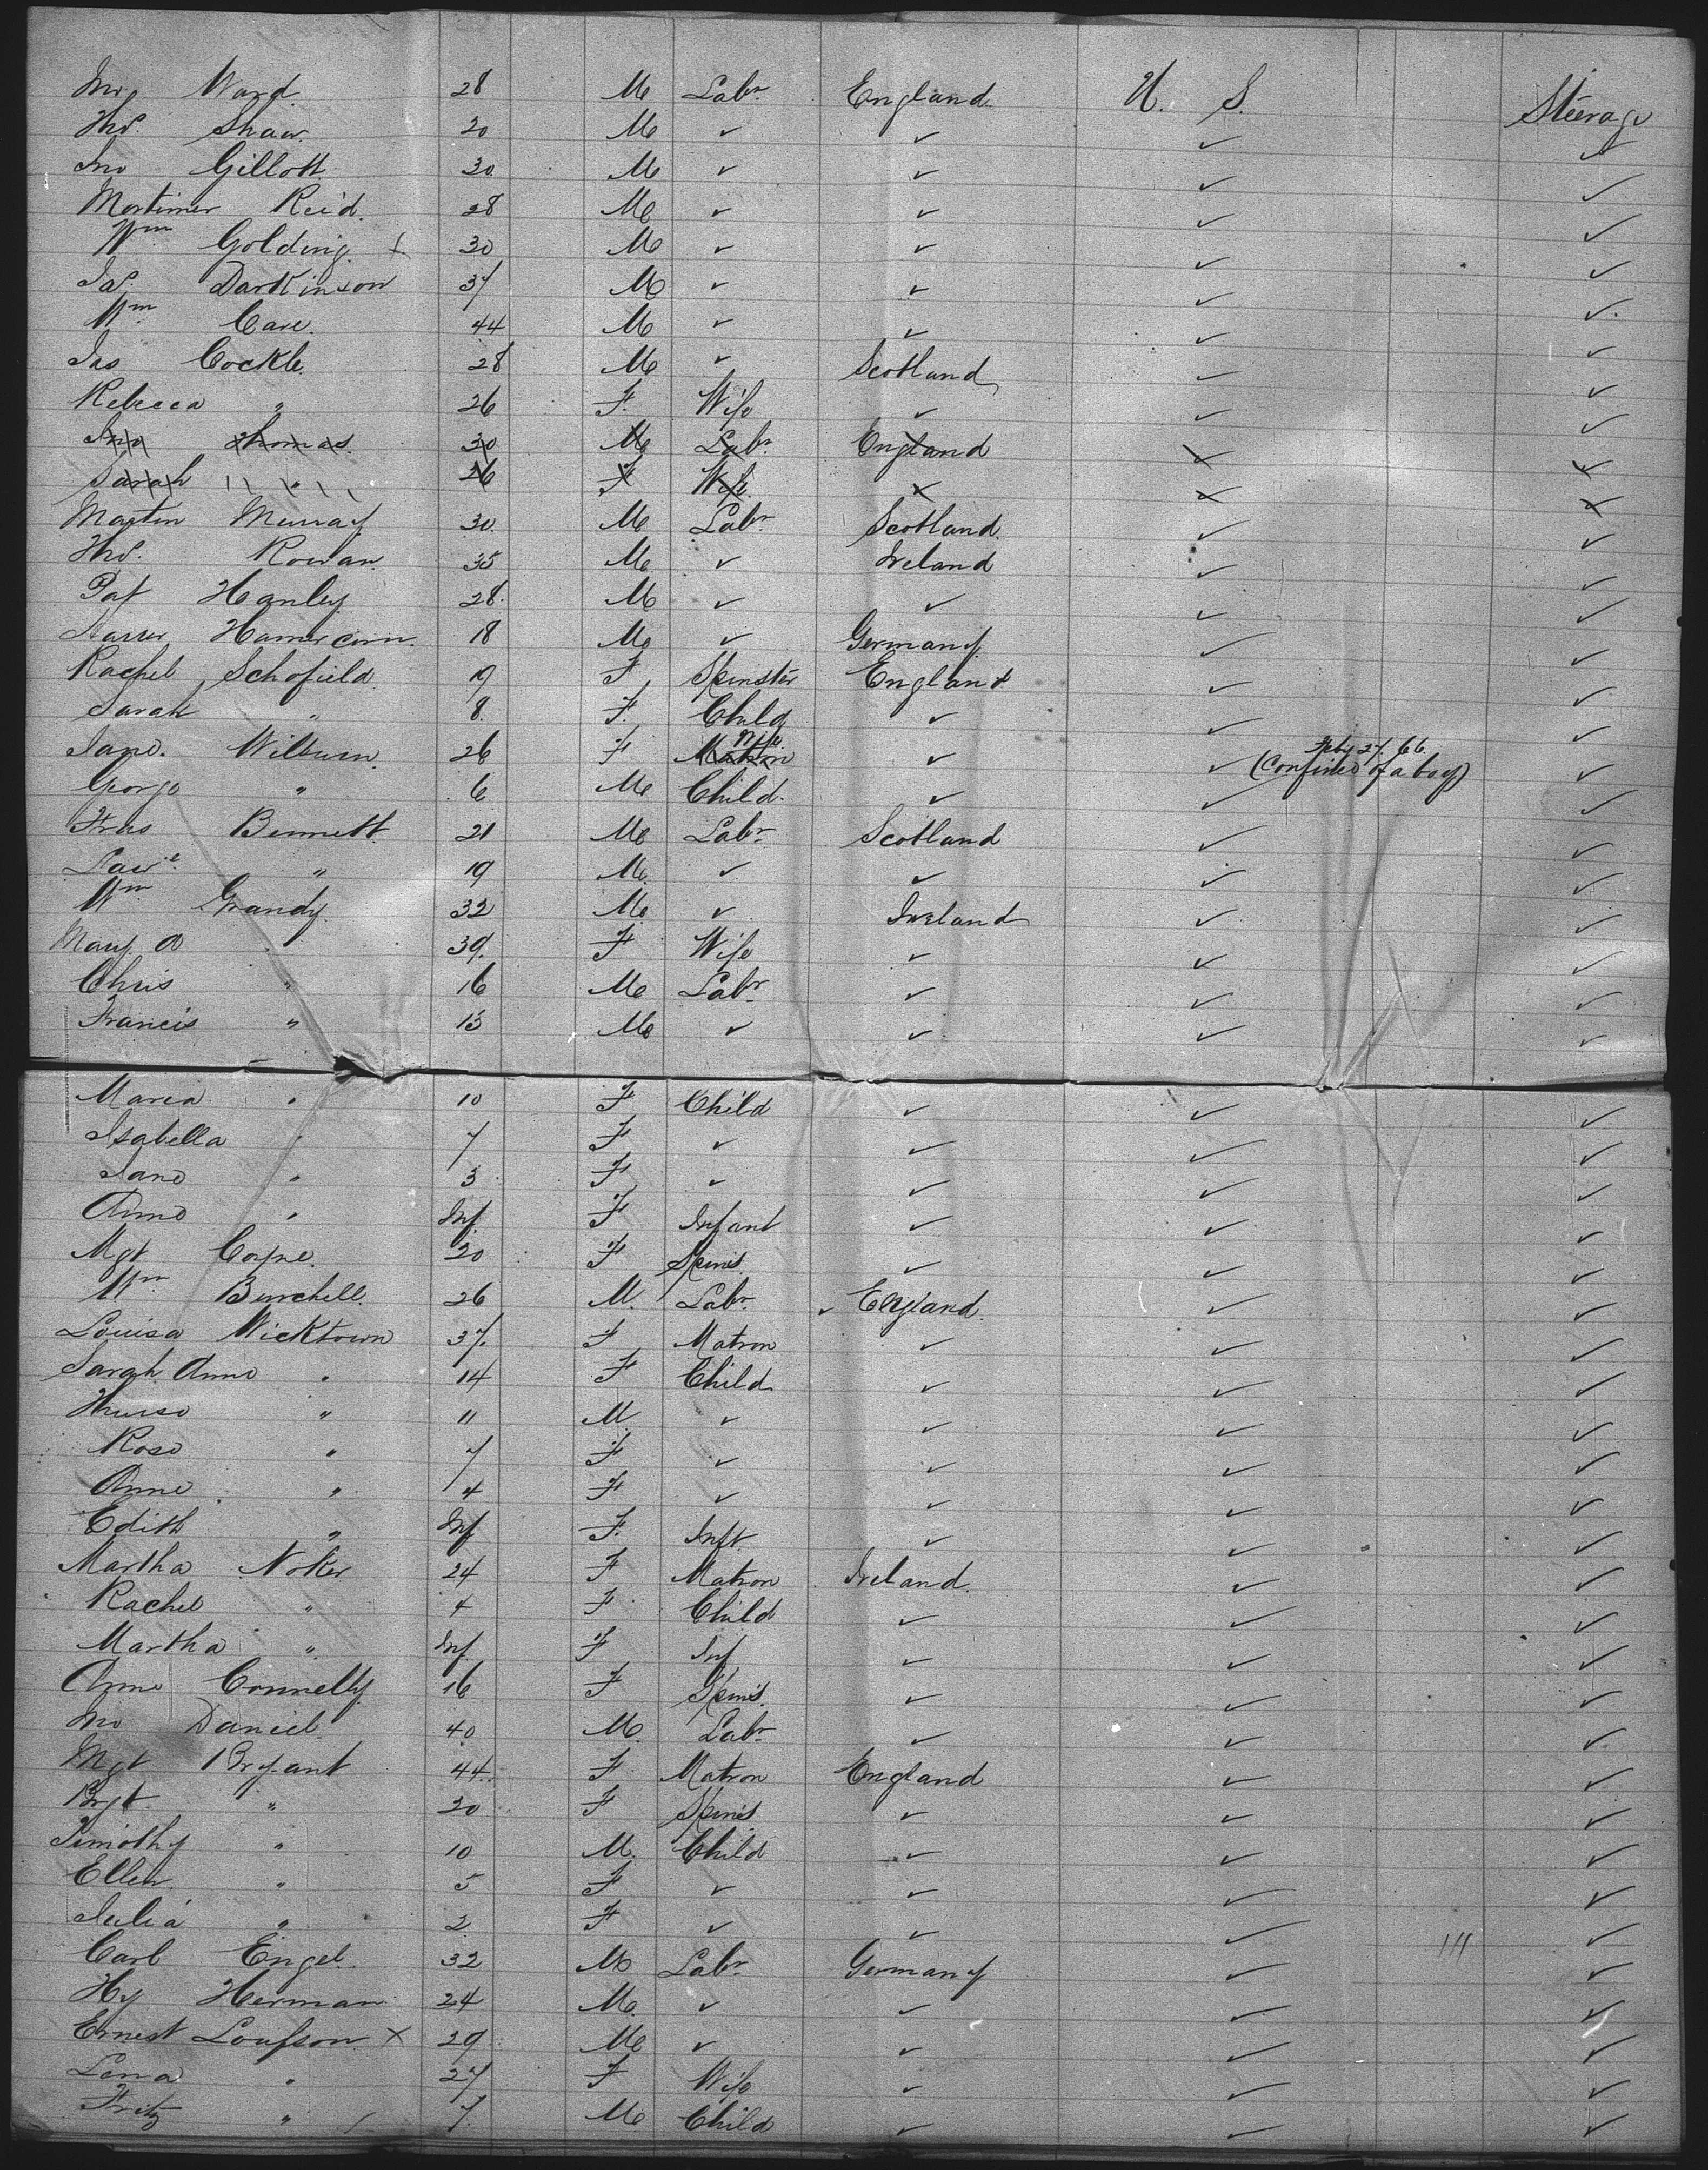 Jno Ward 28 M Labr England U. S. Steerage
Thos. Shaw 20 M ✓ ✓ ✓ ✓
Jno Gillott 30 M ✓ ✓ ✓ ✓
Mortimer Reid 28 M ✓ ✓ ✓ ✓
Wm Golding x 30 M ✓ ✓ ✓ ✓
Jas. Darkinson 37 M ✓ ✓ ✓ ✓
Wm Care. 44 M ✓ ✓ ✓ ✓
Jas Cockle 28 M ✓ Scotland ✓ ✓
Rebecca " 26 F. Wife ✓ ✓ ✓
Jno Thomas 30 M Labr England ✓ ✓
Sarah " 26 F Wife ✓ ✓ ✓
Martin Murray 30 M Labr Scotland ✓ ✓
Thos. Rowan 35 M ✓ Ireland ✓ ✓
Pat Hanley 28 M ✓ ✓ ✓ ✓
Hamercorn 18 M ✓ Germany ✓ ✓
Rachel Schofield 19 F Spinster England ✓ ✓
Sarah " 8 F. Child ✓ ✓ ✓
Jane. Wilburn 26 F Matron Wife ✓ ✓ Feby 27. 66. (Confined of a boy) ✓
George " 6 M Child. ✓ ✓ ✓
Fras Bennett 21 M Labr Scotland ✓ ✓
Lawe. " 19 M ✓ ✓ ✓ ✓
Wm Grandy 32 M ✓ Ireland ✓ ✓
Mary A " 39. F Wife ✓ ✓ ✓
Chris " 16 M Labr ✓ ✓ ✓
Francis " 13 M ✓ ✓ ✓ ✓
Maria " 10 F Child ✓ ✓ ✓
Isabella " 7 F ✓ ✓ ✓ ✓
Jane " 3 F ✓ ✓ ✓ ✓
Anne " Inf. F Infant ✓ ✓ ✓
Mgt Coyne. 20 F Spins. ✓ ✓ ✓
Wm Burchell. 26 M. Labr ✓ England ✓ ✓
Louisa Wicktown 37. F Matron ✓ ✓ ✓
Sarah Anne " 14 F Child ✓ ✓ ✓
" 11 M ✓ ✓ ✓ ✓
Rose " 7 F ✓ ✓ ✓ ✓
Anne " 4 F ✓ ✓ ✓ ✓
Edith " Inf F. Inft. ✓ ✓ ✓
Martha Noker 24 F Matron Ireland. ✓ ✓
Rachel " 4 F Child ✓ ✓ ✓
Martha " Inf. F Inf ✓ ✓ ✓
Anne Connelly 16 F Spins. ✓ ✓ ✓
Jno Daniel 40 M. Labr ✓ ✓ ✓
Mgt Bryant 44 F Matron England ✓ ✓
Brgt " 20 F Spins. ✓ ✓ ✓
Timothy " 10 M. Child ✓ ✓ ✓
Ellen " 5 F ✓ ✓ ✓ ✓
Julia " 2 F ✓ ✓ ✓ ✓
Carl Engel 32 M Labr Germany ✓ 111 ✓
Hy Herman 24 M. ✓ ✓ ✓ ✓
Ernest Loufson x 29 M ✓ ✓ ✓ ✓
Lena " 27 F Wife ✓ ✓ ✓
Fritz " 7. M Child ✓ ✓ ✓